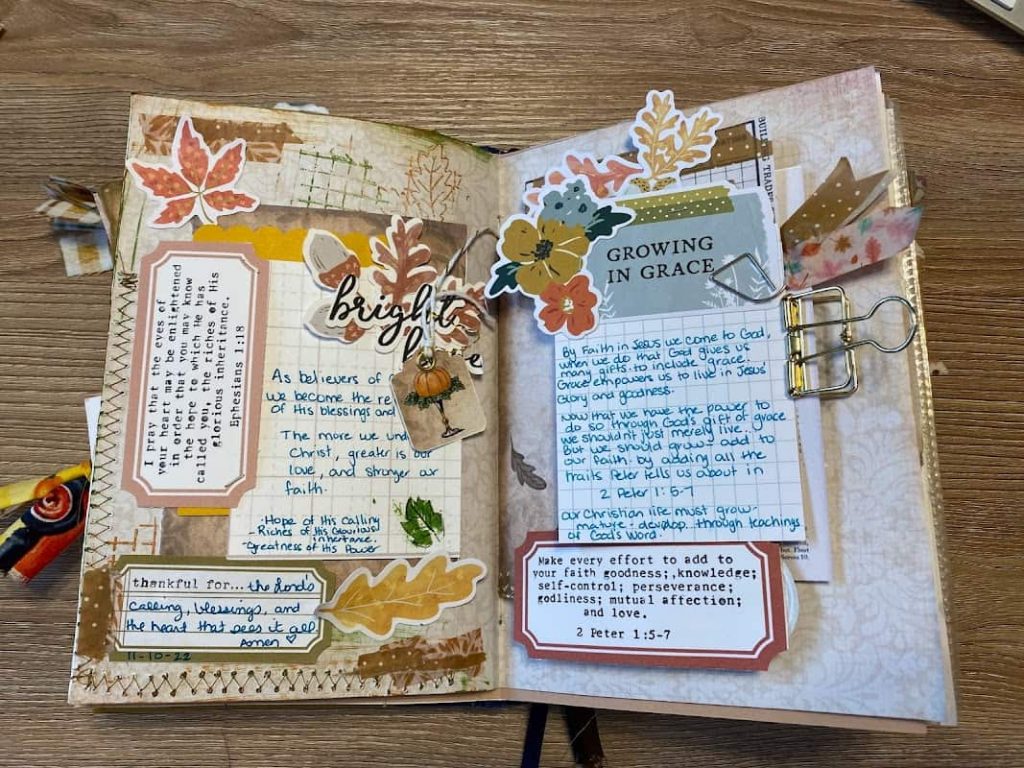 I pray that the eyes of
your heart may be enlightened
in order that you may know
the hope to which He has
called you, the riches of His
glorious inheritance.
Ephesians 1:18
bright
As believers of
we become the
of His blessings and
The more we
Christ, greater is our
love, and stronger our
faith.
·Hope of His Calling
·Riches of His Glorious
inheritance.
·Greatness of His Power
thankful for... the Lord's
calling, blessings, and
the heart that sees it all
Amen
11-10-22
BUILDING TRADE
GROWING
IN GRACE
By Faith in Jesus we come to God,
when we do that God gives us
many gifts to include grace.
Grace empowers us to live in Jesus'
Glory and goodness.
Now that we have the power to
do so through God's gift of grace
we shouldn't just merely live.
But we should grow & add to
our faith by adding all the
traits Peter tells us about in
2 Peter 1:5-7
Our Christian life must grow-
mature - develop through teachings
of God's word.
Make every effort to add to
your faith goodness; knowledge;
self-control; perseverance;
godliness; mutual affection;
and love.
2 Peter 1:5-7